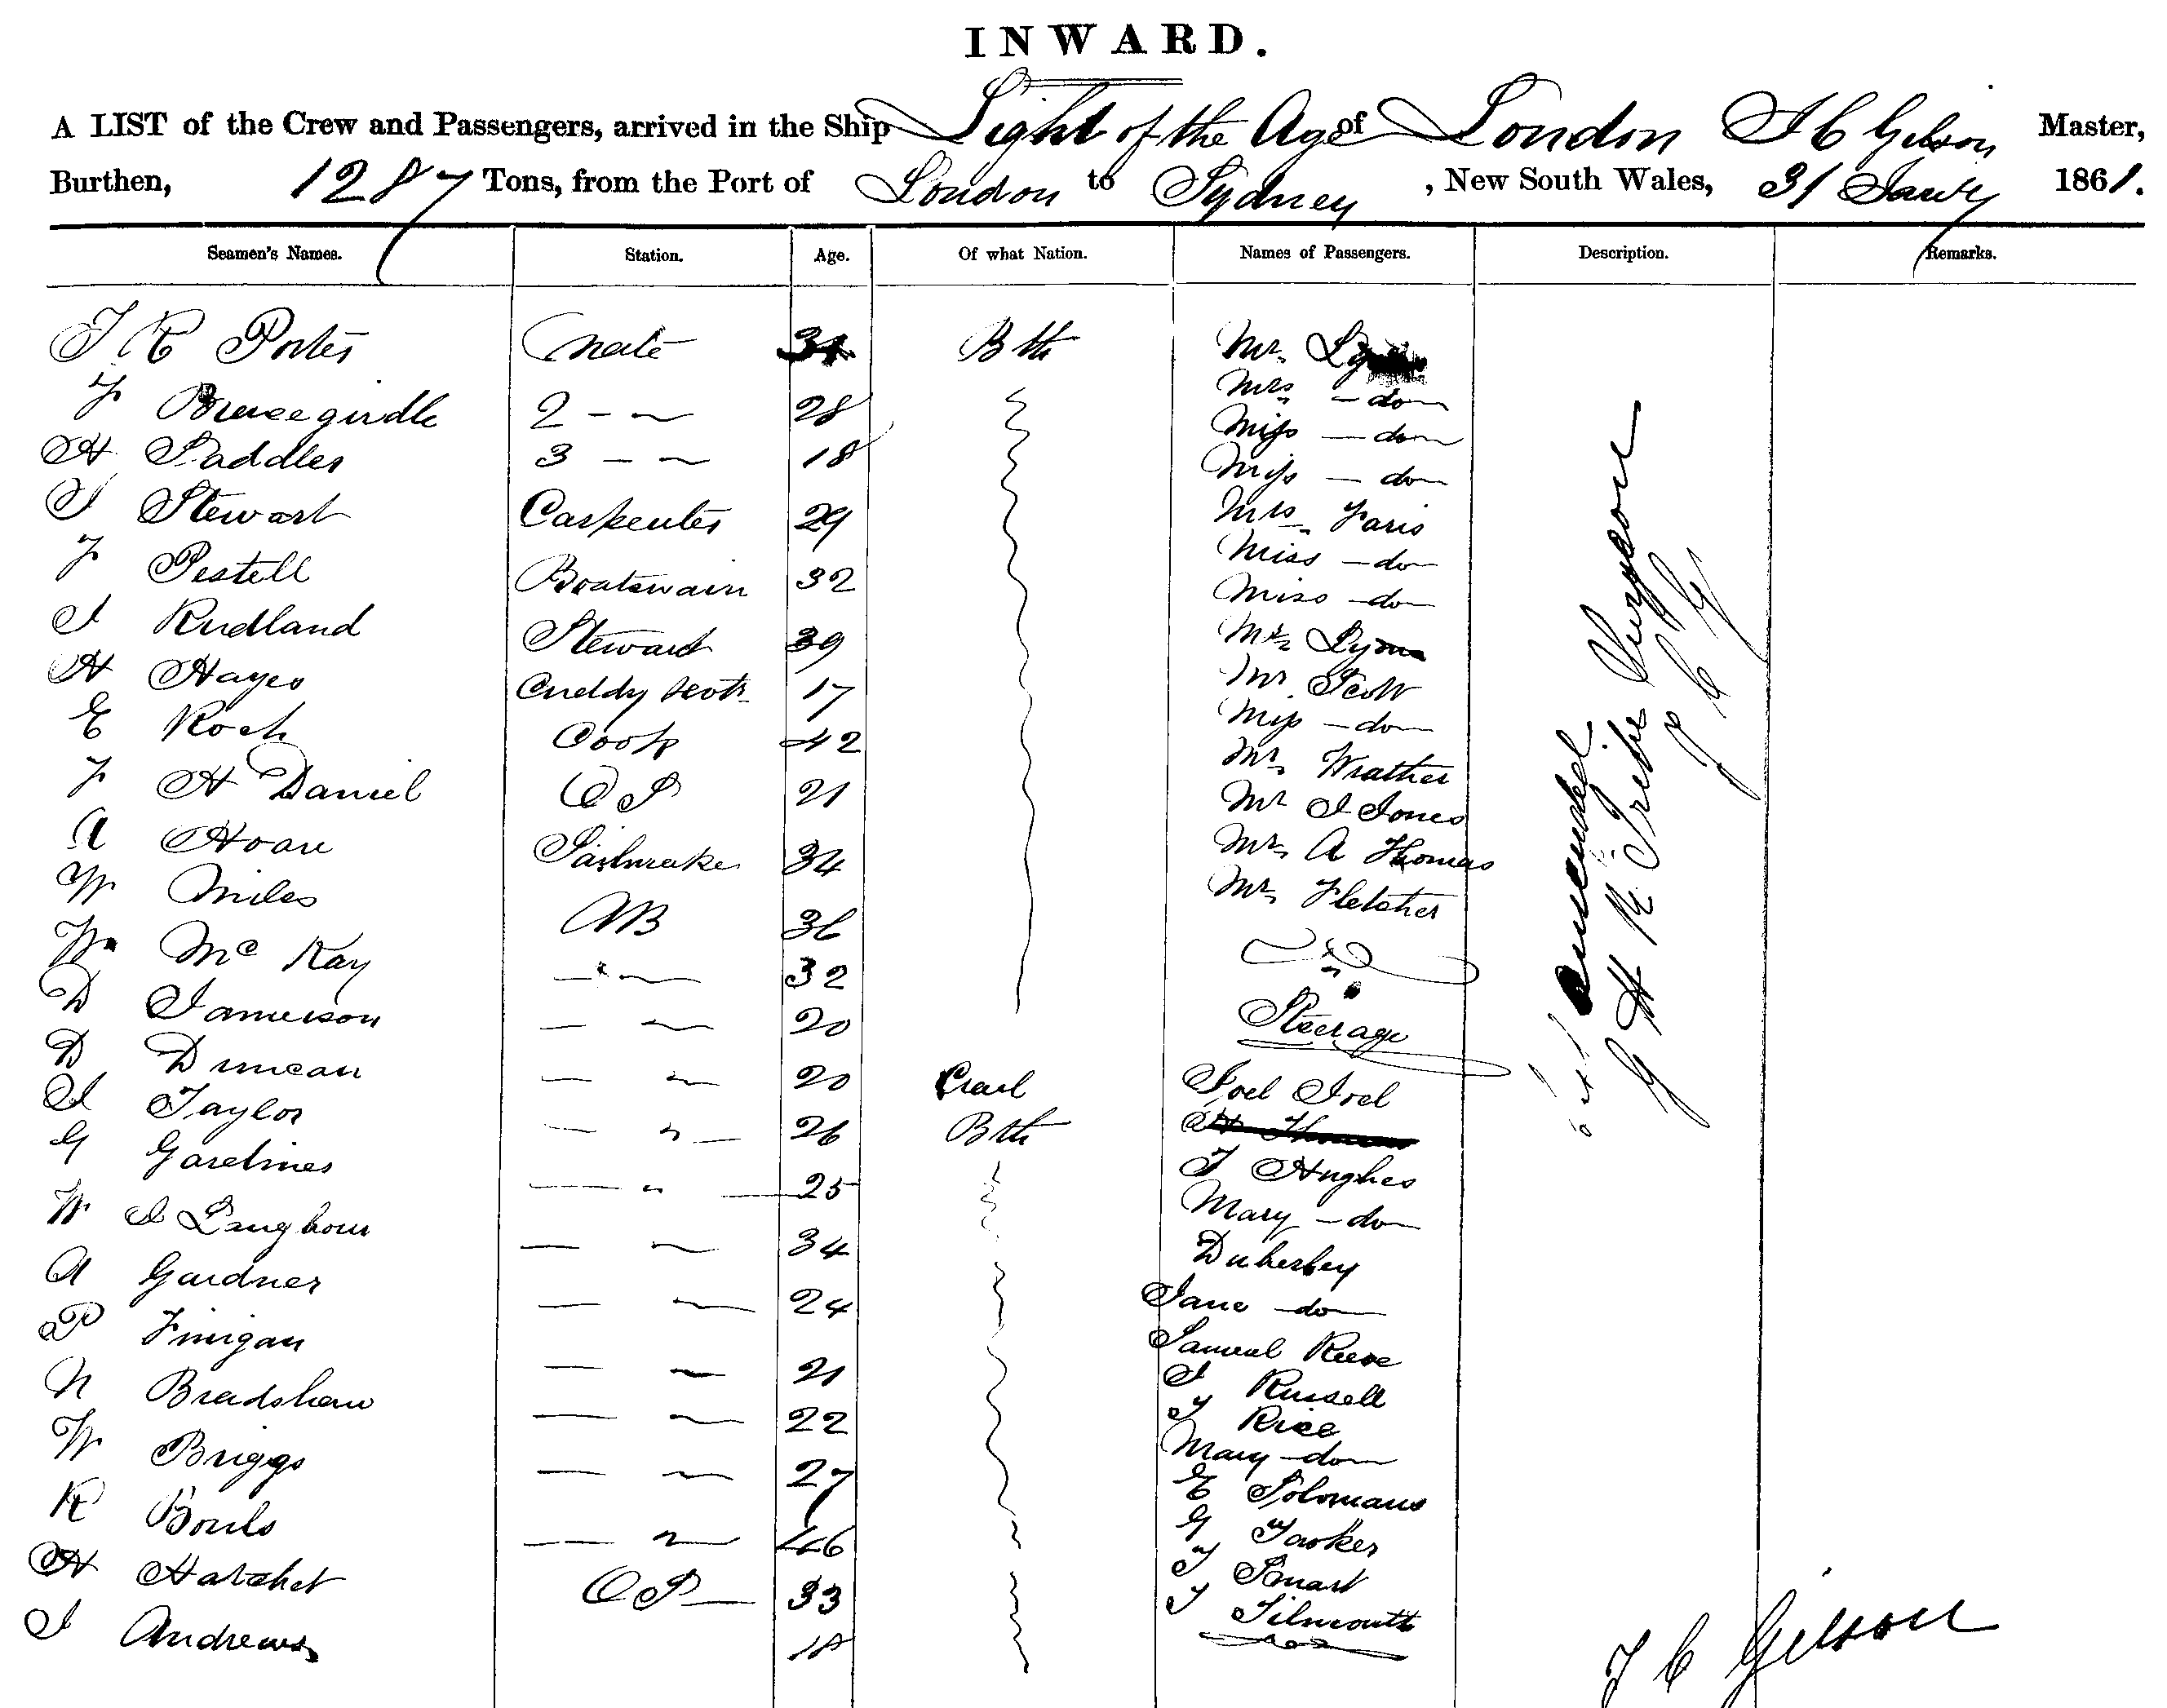 INWARD.
A LIST of the Crew and Passengers, arrived in the Ship Light of the Age of London Master,
Burthen, 1287 Tons, from the Port of London to Sydney, New South Wales, 31 Jany 1861.
Seamen's Names. Station. Age. Of what Nation. Names of Passengers. Description. Remarks.
Porter Mate Bth Mr.
Bracegirdle 2 - 28 Mrs - do
H Saddler 3 - 18 Miss - do
Miss - do
Stewart Carpenter 29 Mrs Faris
Pestell Boatswain 32 Miss - do
Miss - do
Rudland Steward 39 Mr Lyons
H Hayes Cuddy 17 Mr Scott
Miss - do
E Roch Cook 42 Mr Wrather
H Daniel O S 21 Mr J Jones
A Hoare Sailmaker 34 Mr A Thomas
W Miles AB 36 Mr Fletcher
W McKay 32
D Jamieson 20 Steerage
D Duncan 20 Joel Joel
Taylor 26 Bth
G Gardiner 25 Hughes
Mary - do
W J Langhorn 34
A Gardner 24 Jane - do
P Finigan 21 Samuel Reeve
N Bradshaw 22 J Russell
Rice
W Briggs 27 Mary - do
E Solomans
R Bouls 46 G
H Hatchet O S 33 Smart
J Andrews 18
amended
G H K Surgeon
J C G
J C Gilson